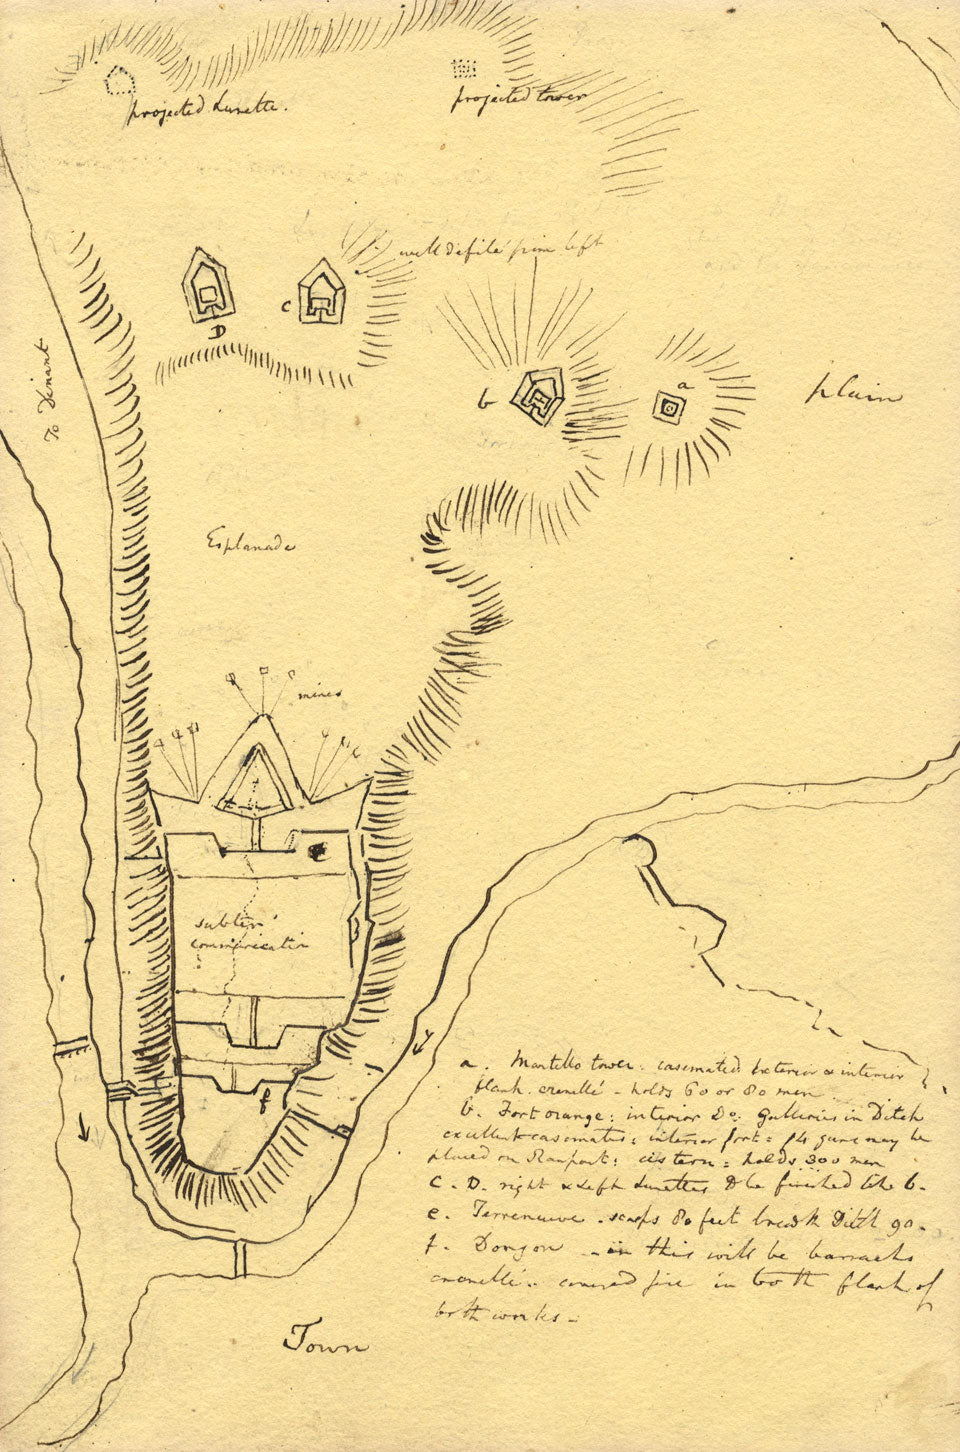 projected Lunette.
projected tower
well defilé from left
D
c
To Dinant
b
a
plain
Esplanade
mines
e
subterr
communication
f
a. Martello tower. casemated exterior & interior
flank crenellé - holds 60 or 80 men
b. Fort orange: interior Do. Galleries in Ditch
excellent casemates: interior fort = 14 guns may be
placed on Rampart: cistern = holds 300 men
C. D. right & left Lunettes to be finished like b.
e. Terreneuve - scarps 80 feet breadth Ditch 90.
f. Donjon - in this will be barracks
crenellé. covered fire in both flank of
both works -
Town